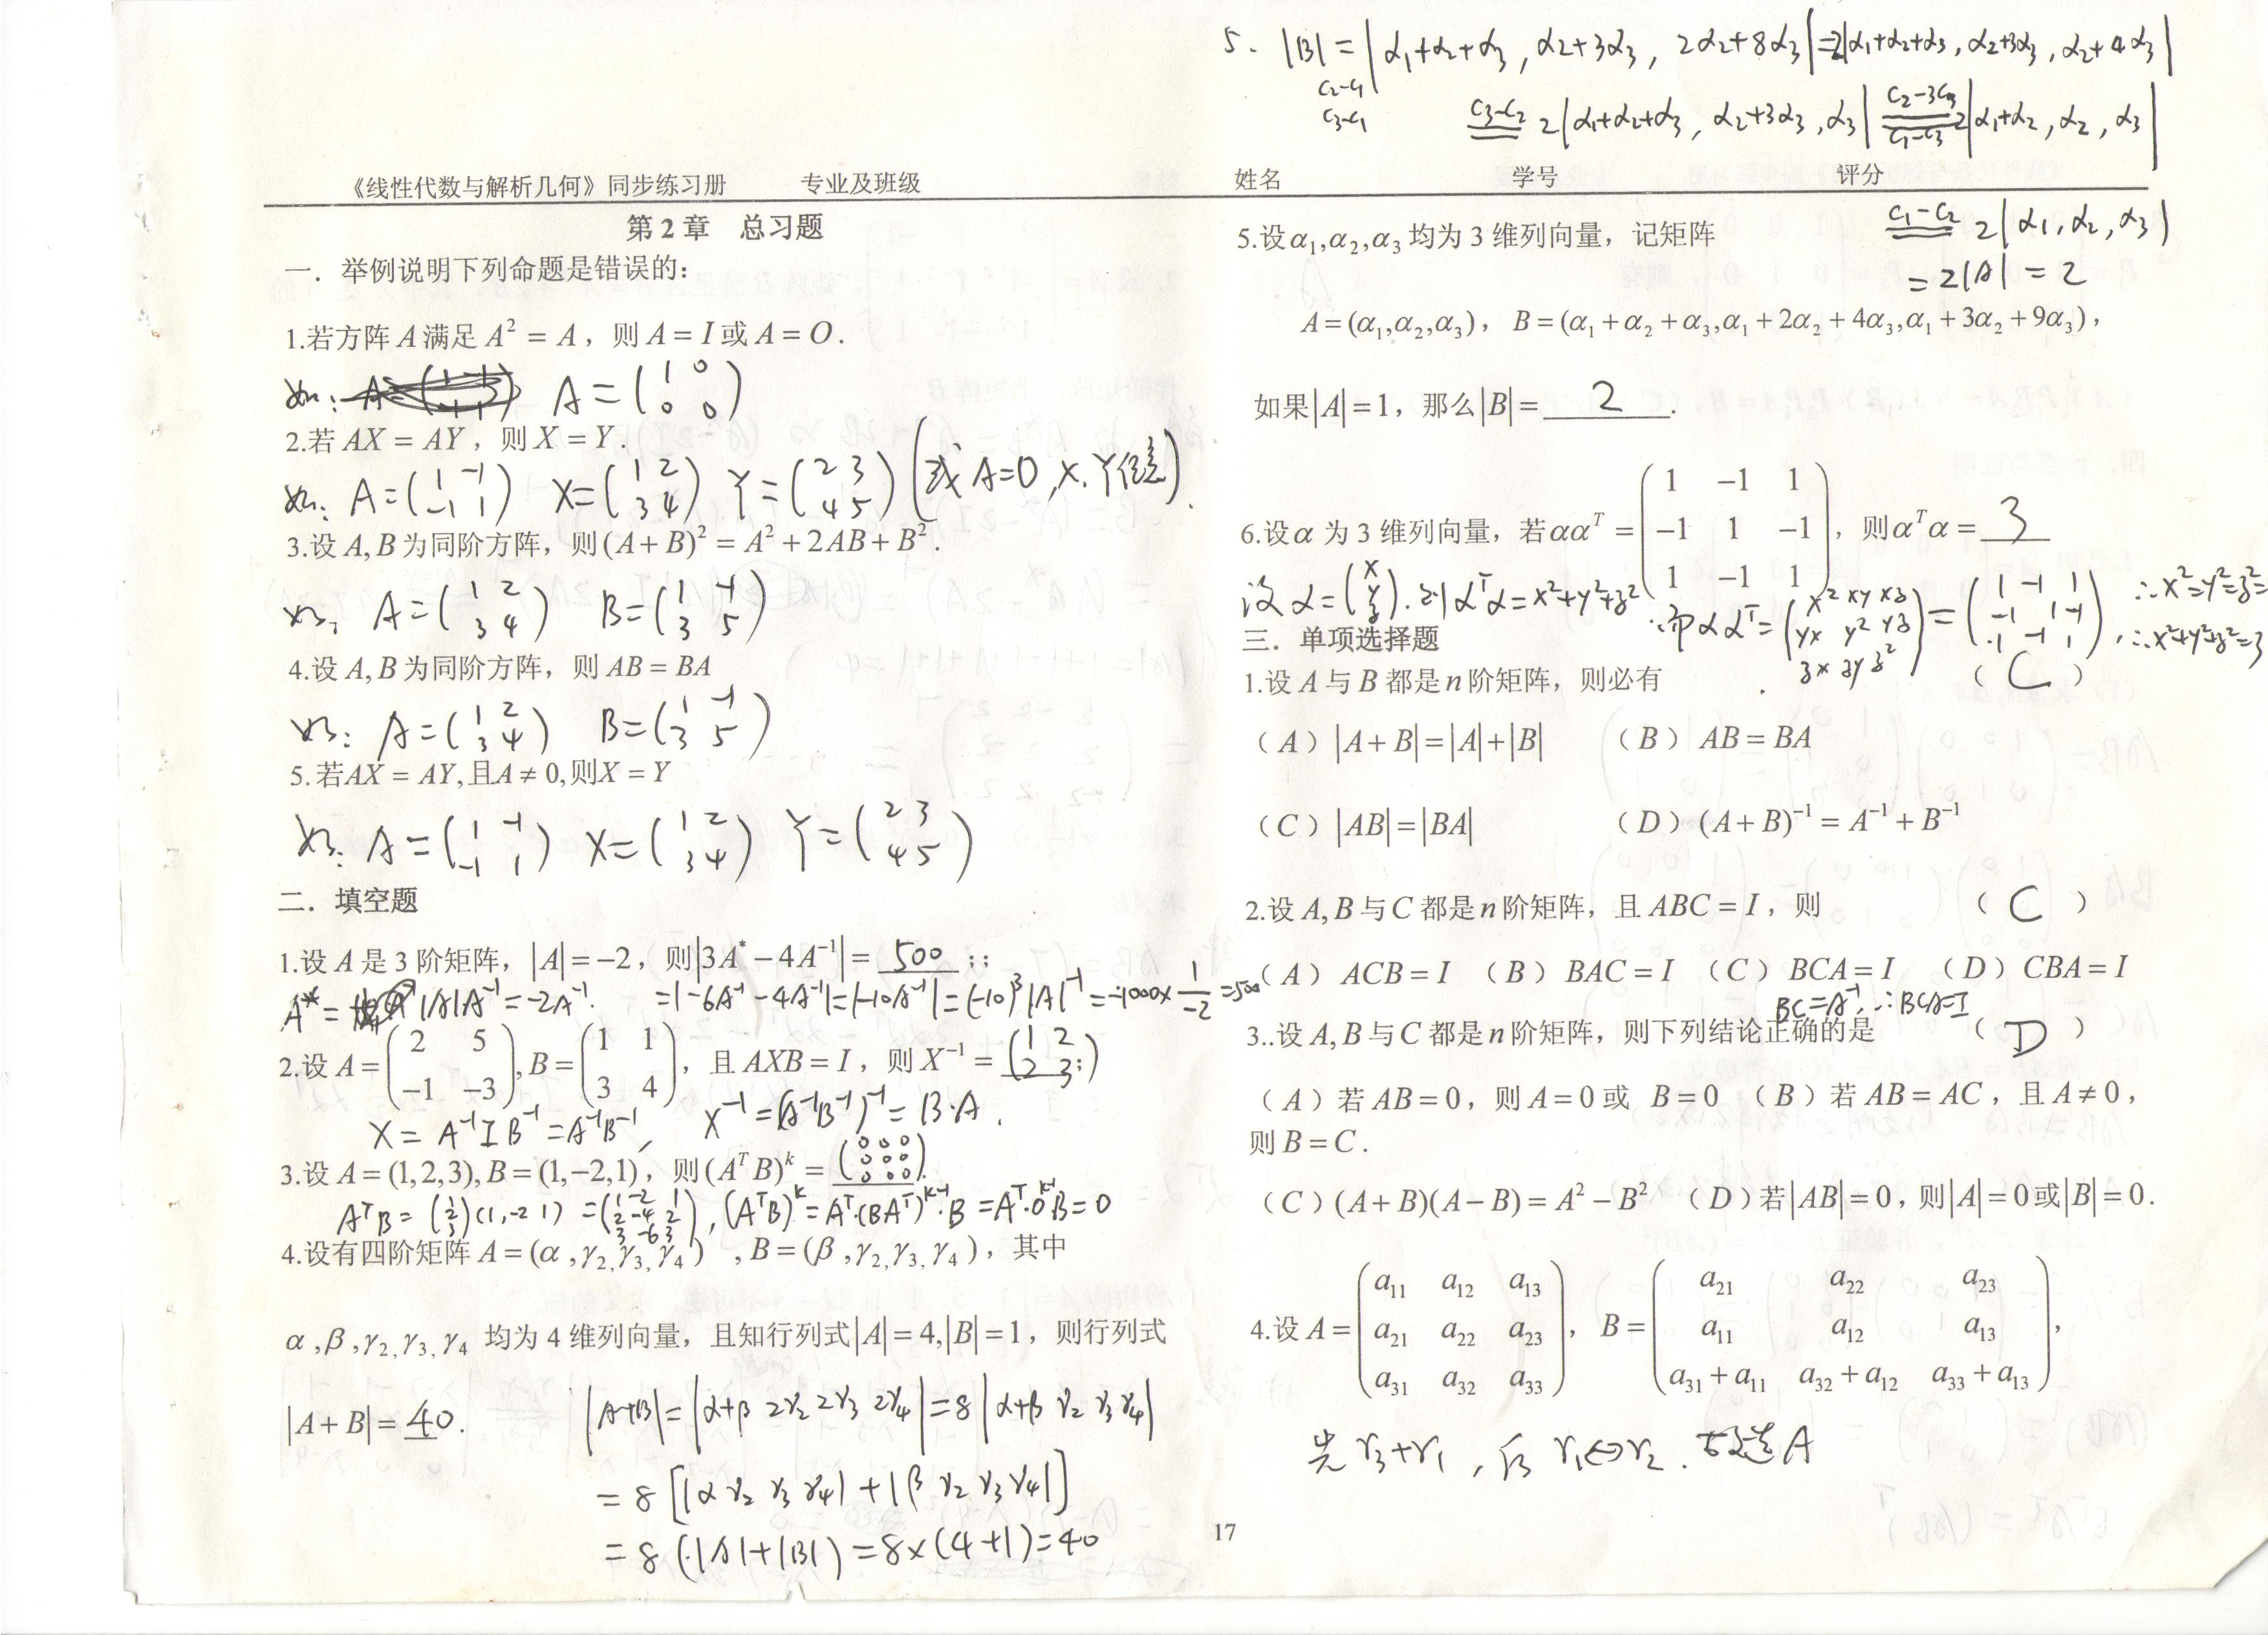 5. |B| = |α₁+α₂+α₃, α₂+3α₃, 2α₂+8α₃| = 2|α₁+α₂+α₃, α₂+3α₃, α₂+4α₃|
c₂-c₁
c₃-c₁
c₃-c₂ 2|α₁+α₂+α₃, α₂+3α₃, α₃| c₂-3c₃ c₁-c₃ 2|α₁+α₂, α₂, α₃|
《线性代数与解析几何》同步练习册 专业及班级 姓名 学号 评分
第2章 总习题
一. 举例说明下列命题是错误的:
1.若方阵 A 满足 A² = A, 则 A = I 或 A = O.
如: A = (1 0; 0 0)
2.若 AX = AY, 则 X = Y.
如: A = (1 -1; -1 1) X = (1 2; 3 4) Y = (2 3; 4 5) (或 A=0, X、Y任意).
3.设 A,B 为同阶方阵, 则 (A+B)² = A² + 2AB + B².
如: A = (1 2; 3 4) B = (1 -1; 3 5)
4.设 A,B 为同阶方阵, 则 AB = BA
如: A = (1 2; 3 4) B = (1 -1; 3 5)
5.若 AX = AY,且 A ≠ 0,则 X = Y
如: A = (1 -1; -1 1) X = (1 2; 3 4) Y = (2 3; 4 5)
二. 填空题
1.设 A 是 3 阶矩阵, |A| = -2, 则 |3A* - 4A⁻¹| = 500 ;;
A* = |A|A⁻¹ = -2A⁻¹. = |-6A⁻¹ - 4A⁻¹| = |-10A⁻¹| = (-10)³|A|⁻¹ = -1000 × 1/-2 = 500
2.设 A = (2 5; -1 -3), B = (1 1; 3 4), 且 AXB = I, 则 X⁻¹ = (1 2; 2 3) ;
X = A⁻¹IB⁻¹ = A⁻¹B⁻¹, X⁻¹ = (A⁻¹B⁻¹)⁻¹ = B·A.
3.设 A = (1,2,3), B = (1,-2,1), 则 (AᵀB)ᵏ = (0 0 0; 0 0 0; 0 0 0).
AᵀB = (1; 2; 3)(1, -2 1) = (1 -2 1; 2 -4 2; 3 -6 3), (AᵀB)ᵏ = Aᵀ·(BAᵀ)ᵏ⁻¹·B = Aᵀ·0ᵏ⁻¹B = 0
4.设有四阶矩阵 A = (α,γ₂,γ₃,γ₄), B = (β,γ₂,γ₃,γ₄), 其中
α,β,γ₂,γ₃,γ₄ 均为 4 维列向量, 且知行列式 |A| = 4,|B| = 1, 则行列式
|A+B| = 40. |A+B| = |α+β 2γ₂ 2γ₃ 2γ₄| = 8|α+β γ₂ γ₃ γ₄|
= 8[|α γ₂ γ₃ γ₄| + |β γ₂ γ₃ γ₄|]
= 8(|A|+|B|) = 8×(4+1) = 40
5.设 α₁,α₂,α₃ 均为 3 维列向量, 记矩阵
c₁-c₂ 2|α₁, α₂, α₃|
= 2|A| = 2
A = (α₁,α₂,α₃), B = (α₁+α₂+α₃,α₁+2α₂+4α₃,α₁+3α₂+9α₃),
如果 |A| = 1, 那么 |B| = 2.
6.设 α 为 3 维列向量, 若 ααᵀ = (1 -1 1; -1 1 -1; 1 -1 1), 则 αᵀα = 3
设 α = (x; y; z). 则 αᵀα = x²+y²+z² 而 ααᵀ = (x² xy xz; yx y² yz; zx zy z²) = (1 -1 1; -1 1 -1; 1 -1 1), ∴x²=y²=z²=
∴x²+y²+z²=3
三. 单项选择题
1.设 A 与 B 都是 n 阶矩阵, 则必有 ( C )
(A) |A+B| = |A|+|B| (B) AB = BA
(C) |AB| = |BA| (D) (A+B)⁻¹ = A⁻¹ + B⁻¹
2.设 A,B 与 C 都是 n 阶矩阵, 且 ABC = I, 则 ( C )
(A) ACB = I (B) BAC = I (C) BCA = I (D) CBA = I
BC = A⁻¹, ∴BCA=I
3..设 A,B 与 C 都是 n 阶矩阵, 则下列结论正确的是 ( D )
(A) 若 AB = 0, 则 A = 0 或 B = 0 (B) 若 AB = AC, 且 A ≠ 0,
则 B = C.
(C) (A+B)(A-B) = A² - B² (D) 若 |AB| = 0, 则 |A| = 0 或 |B| = 0.
4.设 A = (a₁₁ a₁₂ a₁₃; a₂₁ a₂₂ a₂₃; a₃₁ a₃₂ a₃₃), B = (a₂₁ a₂₂ a₂₃; a₁₁ a₁₂ a₁₃; a₃₁+a₁₁ a₃₂+a₁₂ a₃₃+a₁₃),
先 r₃+r₁, 后 r₁↔r₂. 故选 A
17